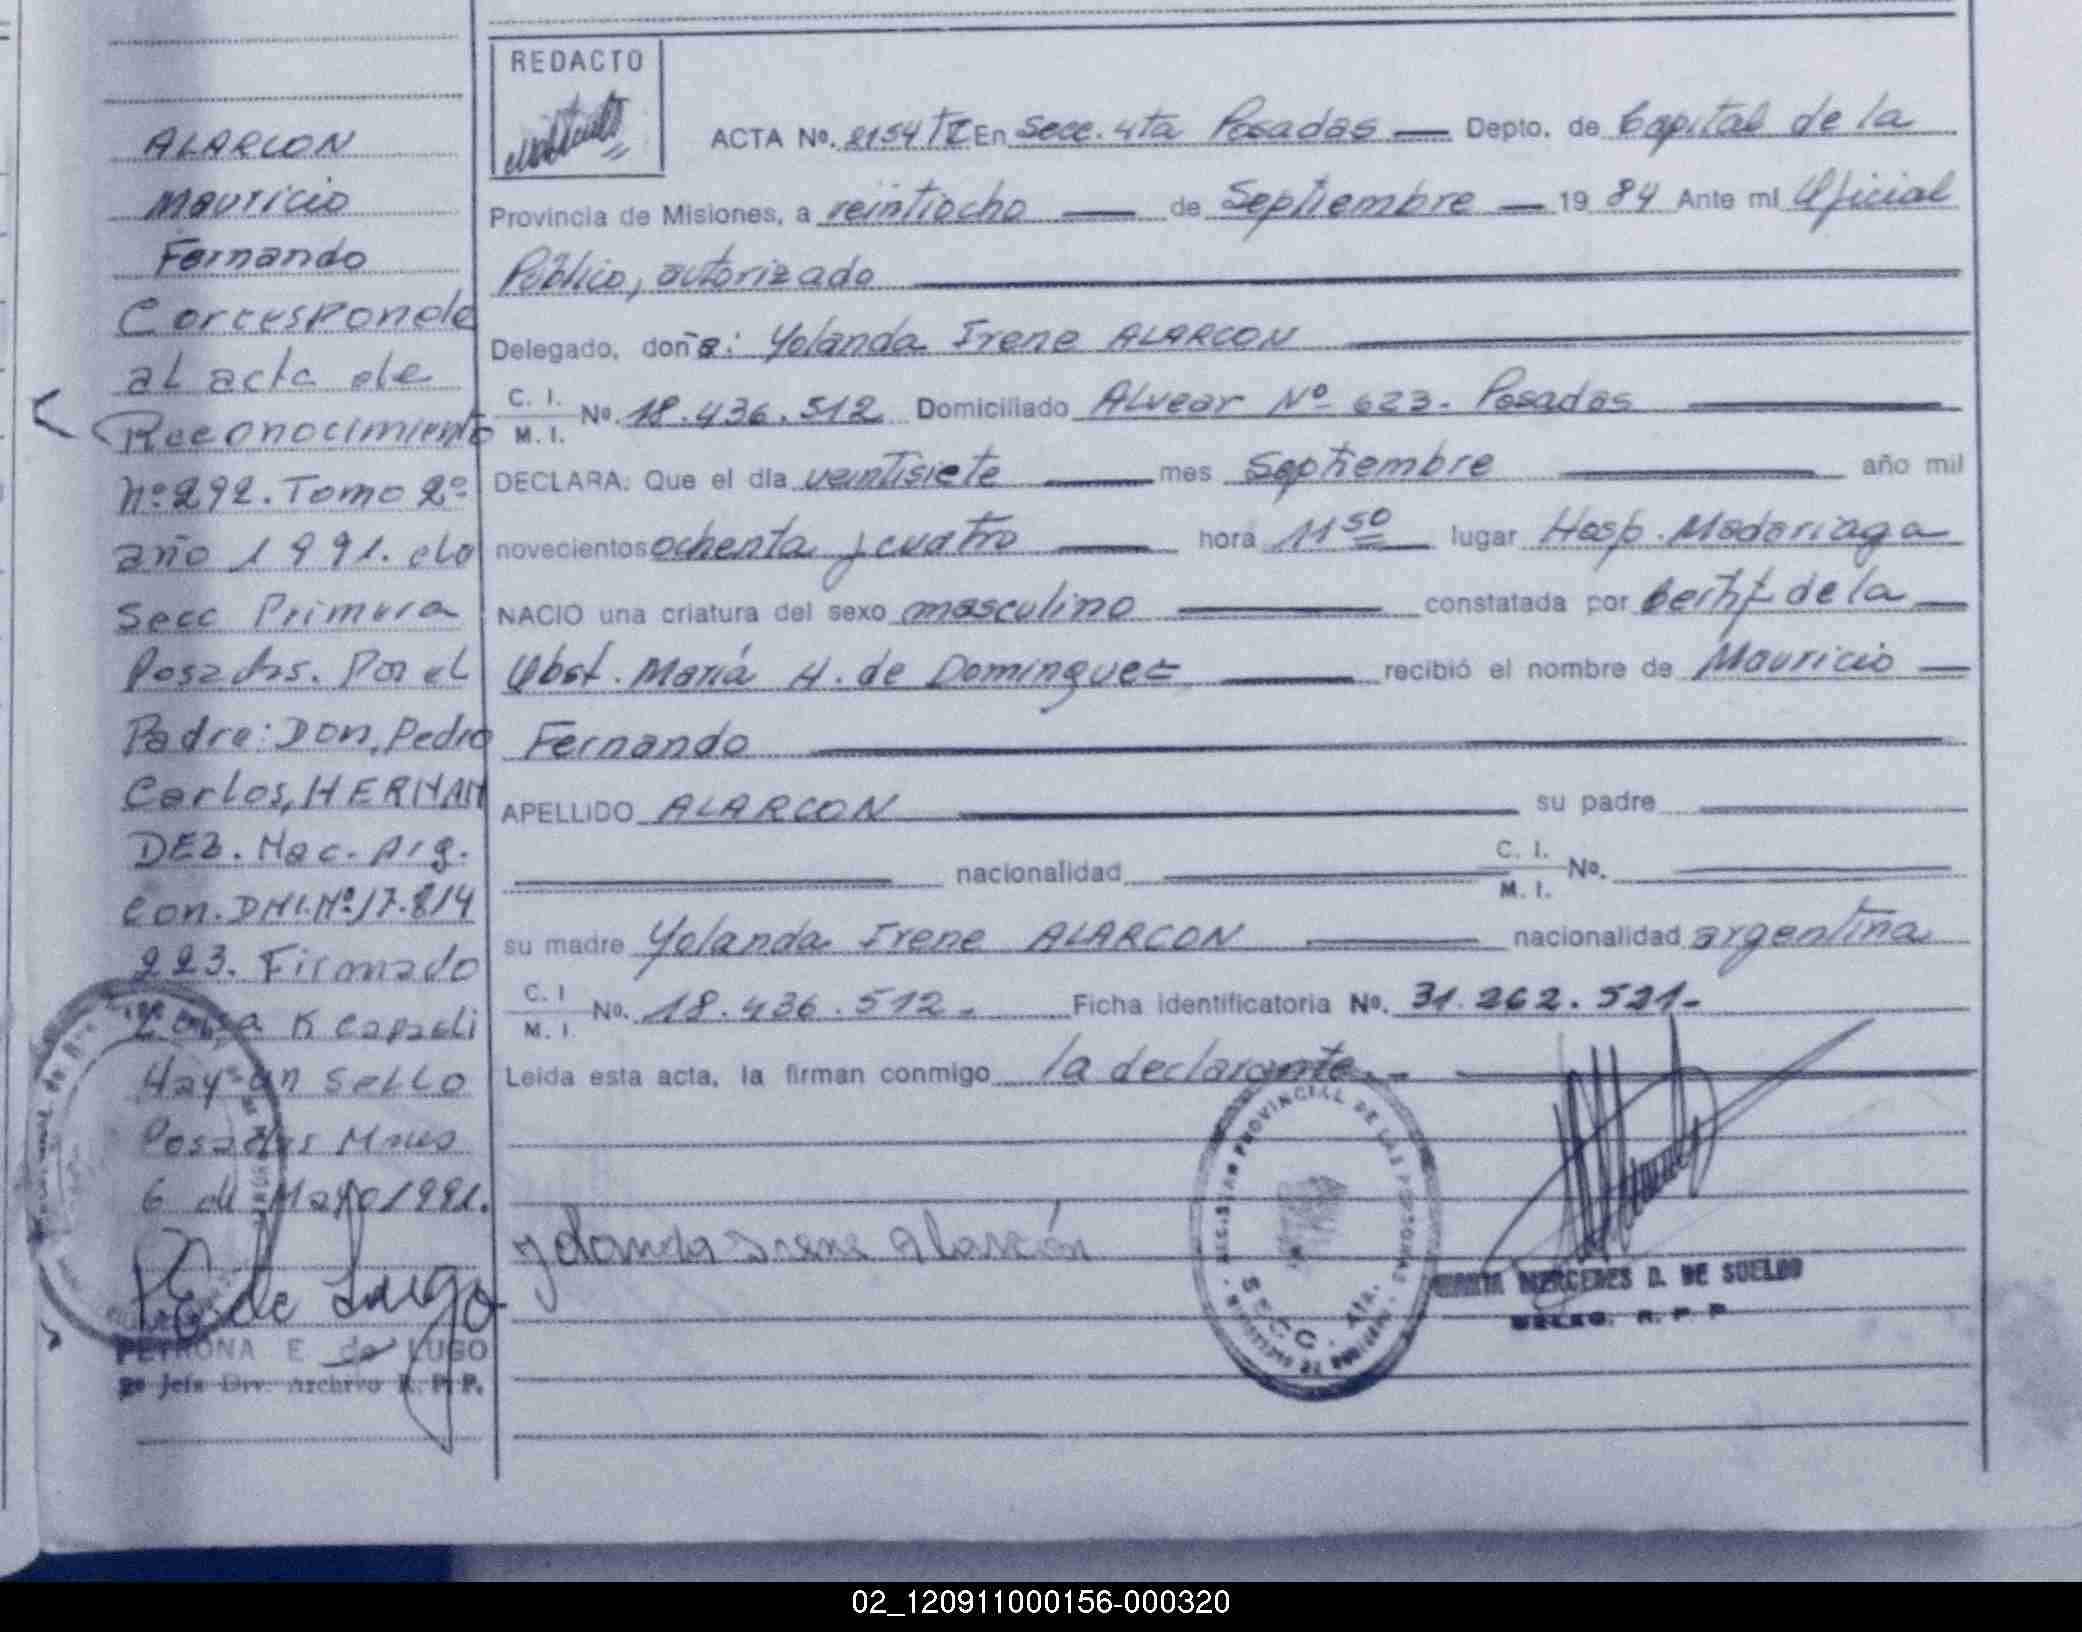 ALARCON
Mauricio
Fernando
Corresponde
al acta de
Reconocimiento
Nº 292. Tomo 2º
año 1991. de
Secc Primera
Posadas. Por el
Padre: Don, Pedro
Carlos, HERNAN
DEZ. Nac. Arg.
Con. DNI. Nº 17.814
223. Firmado
Hay un Sello
Posadas Mnes
6 de Mayo 1991.
P E de Lugo
PETRONA E. de LUGO
2º Jefa Div. Archivo R. P. P.
REDACTO
ACTA Nº. 2154 En Secc. 4ta Posadas — Depto. de Capital de la
Provincia de Misiones, a veintiocho — de Septiembre — 19 84 Ante mí Oficial
Público, autorizado
Delegado, doña: Yolanda Irene ALARCON
C. I.
M. I. Nº. 18.436.512 Domiciliado Alvear Nº 623- Posadas
DECLARA: Que el día veintisiete — mes Septiembre — año mil
novecientos ochenta y cuatro — hora 11 50 lugar Hosp. Madariaga
NACIO una criatura del sexo masculino — constatada por Certif de la —
Obst. María H. de Dominguez — recibió el nombre de Mauricio —
Fernando
APELLIDO ALARCON — su padre —
— nacionalidad — C. I.
M. I. Nº. —
su madre Yolanda Irene ALARCON — nacionalidad argentina
C. I
M. I. Nº. 18.436.512.- Ficha identificatoria Nº. 31.262.521-
Leída esta acta, la firman conmigo la declarante.-
Yolanda Irene Alarcón
REGISTRO PROVINCIAL DE LAS PERSONAS
SECC. 4ta.
MERCEDES D. DE SUELDO
DELEG. R. P. P.
02_120911000156-000320